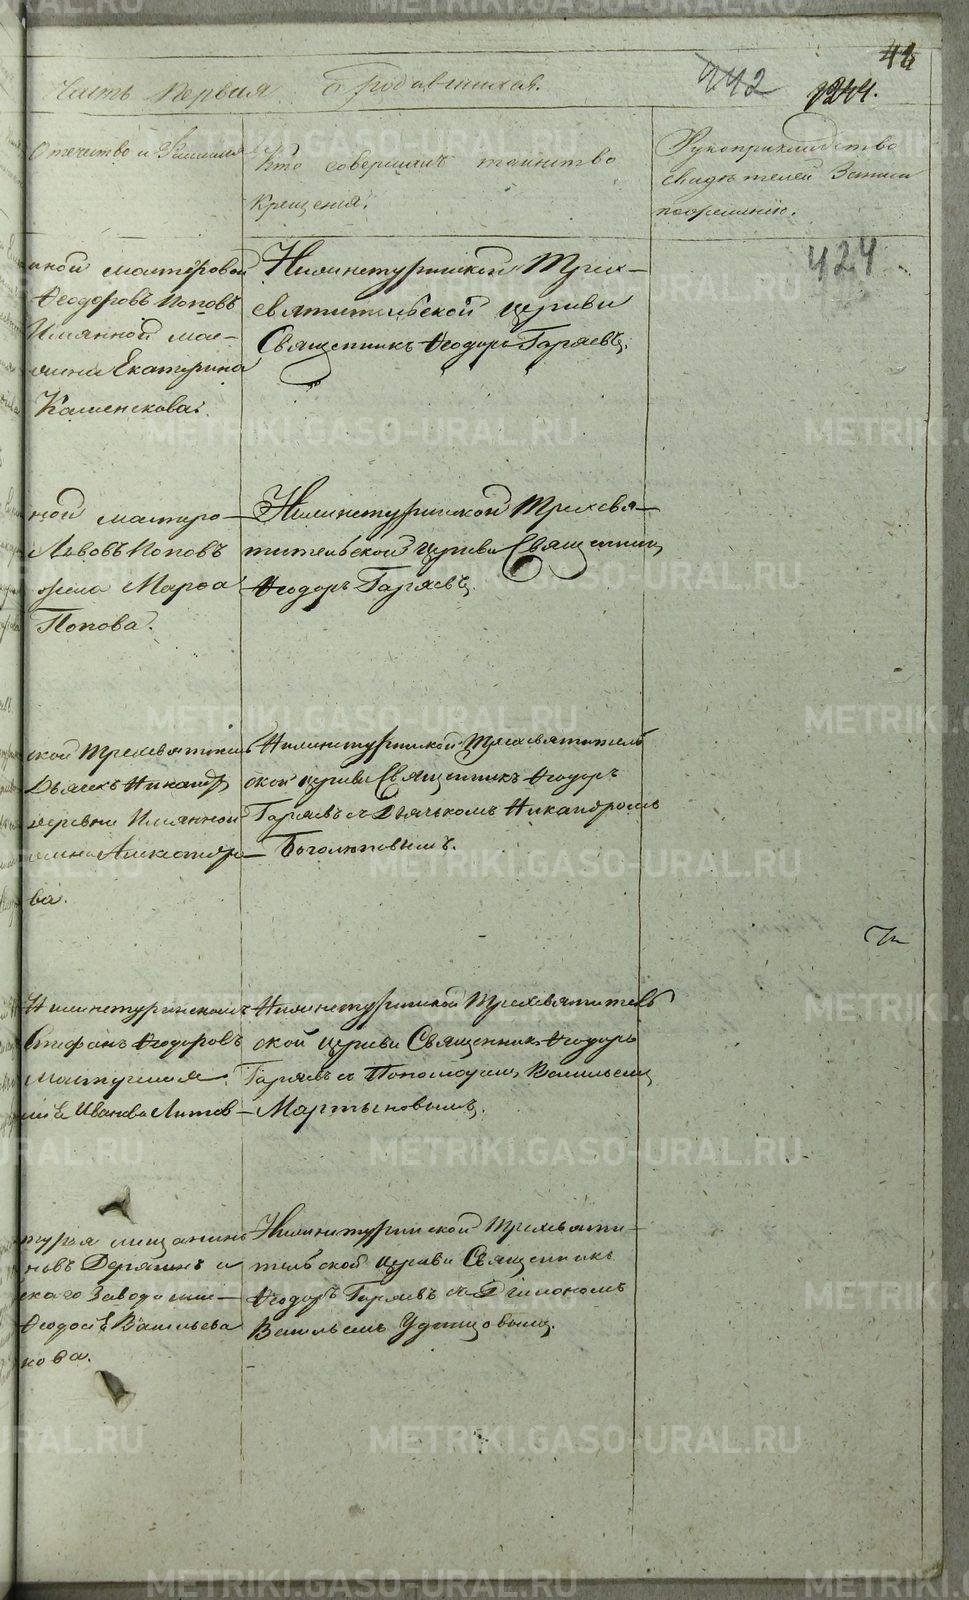 Часть первая о родившихся.
442
44
1244.
Отечество и Фамилия
Кто совершалъ таинство
крещенія.
Рукоприкладство
свидѣтелей записи
по желанію.
424
мастеровой
Ѳеодоровъ Поповъ
Имянной мас-
Екатерина
Каменскова.
Нижнетуринской Трех-
святительской церкви
Священникъ Ѳеодоръ Гаряевъ.
ной мастеро-
Львовъ Поповъ
жена Марѳа
Попова.
Нижнетуринской Трехсвя-
тительской церкви Священникъ
Ѳеодоръ Гаряевъ.
ской Трехсвятитель
Дьячекъ Никандр
деревни Имянной
Александро-
ва.
Нижнетуринской Трехсвятитель
ской церкви Священникъ Ѳеодоръ
Гаряевъ съ Дьячкомъ Никандромъ
Боголюповымъ.
Нижнетуринскомъ
Стефанъ Ѳеодоровъ
Иванова Литов-
Нижнетуринской Трехсвятитель
ской церкви Священникъ Ѳеодоръ
Гаряевъ съ Пономаремъ Васильемъ
Мартыновымъ.
мищанинъ
новъ Дерягинъ и
скаго завода
Ѳеодосья Васильева
кова.
Нижнетуринской Трехсвяти-
тельской церкви Священникъ
Ѳеодоръ Гаряевъ съ Діакономъ
Васильемъ Удинцовымъ.
METRIKI.GASO-URAL.RU